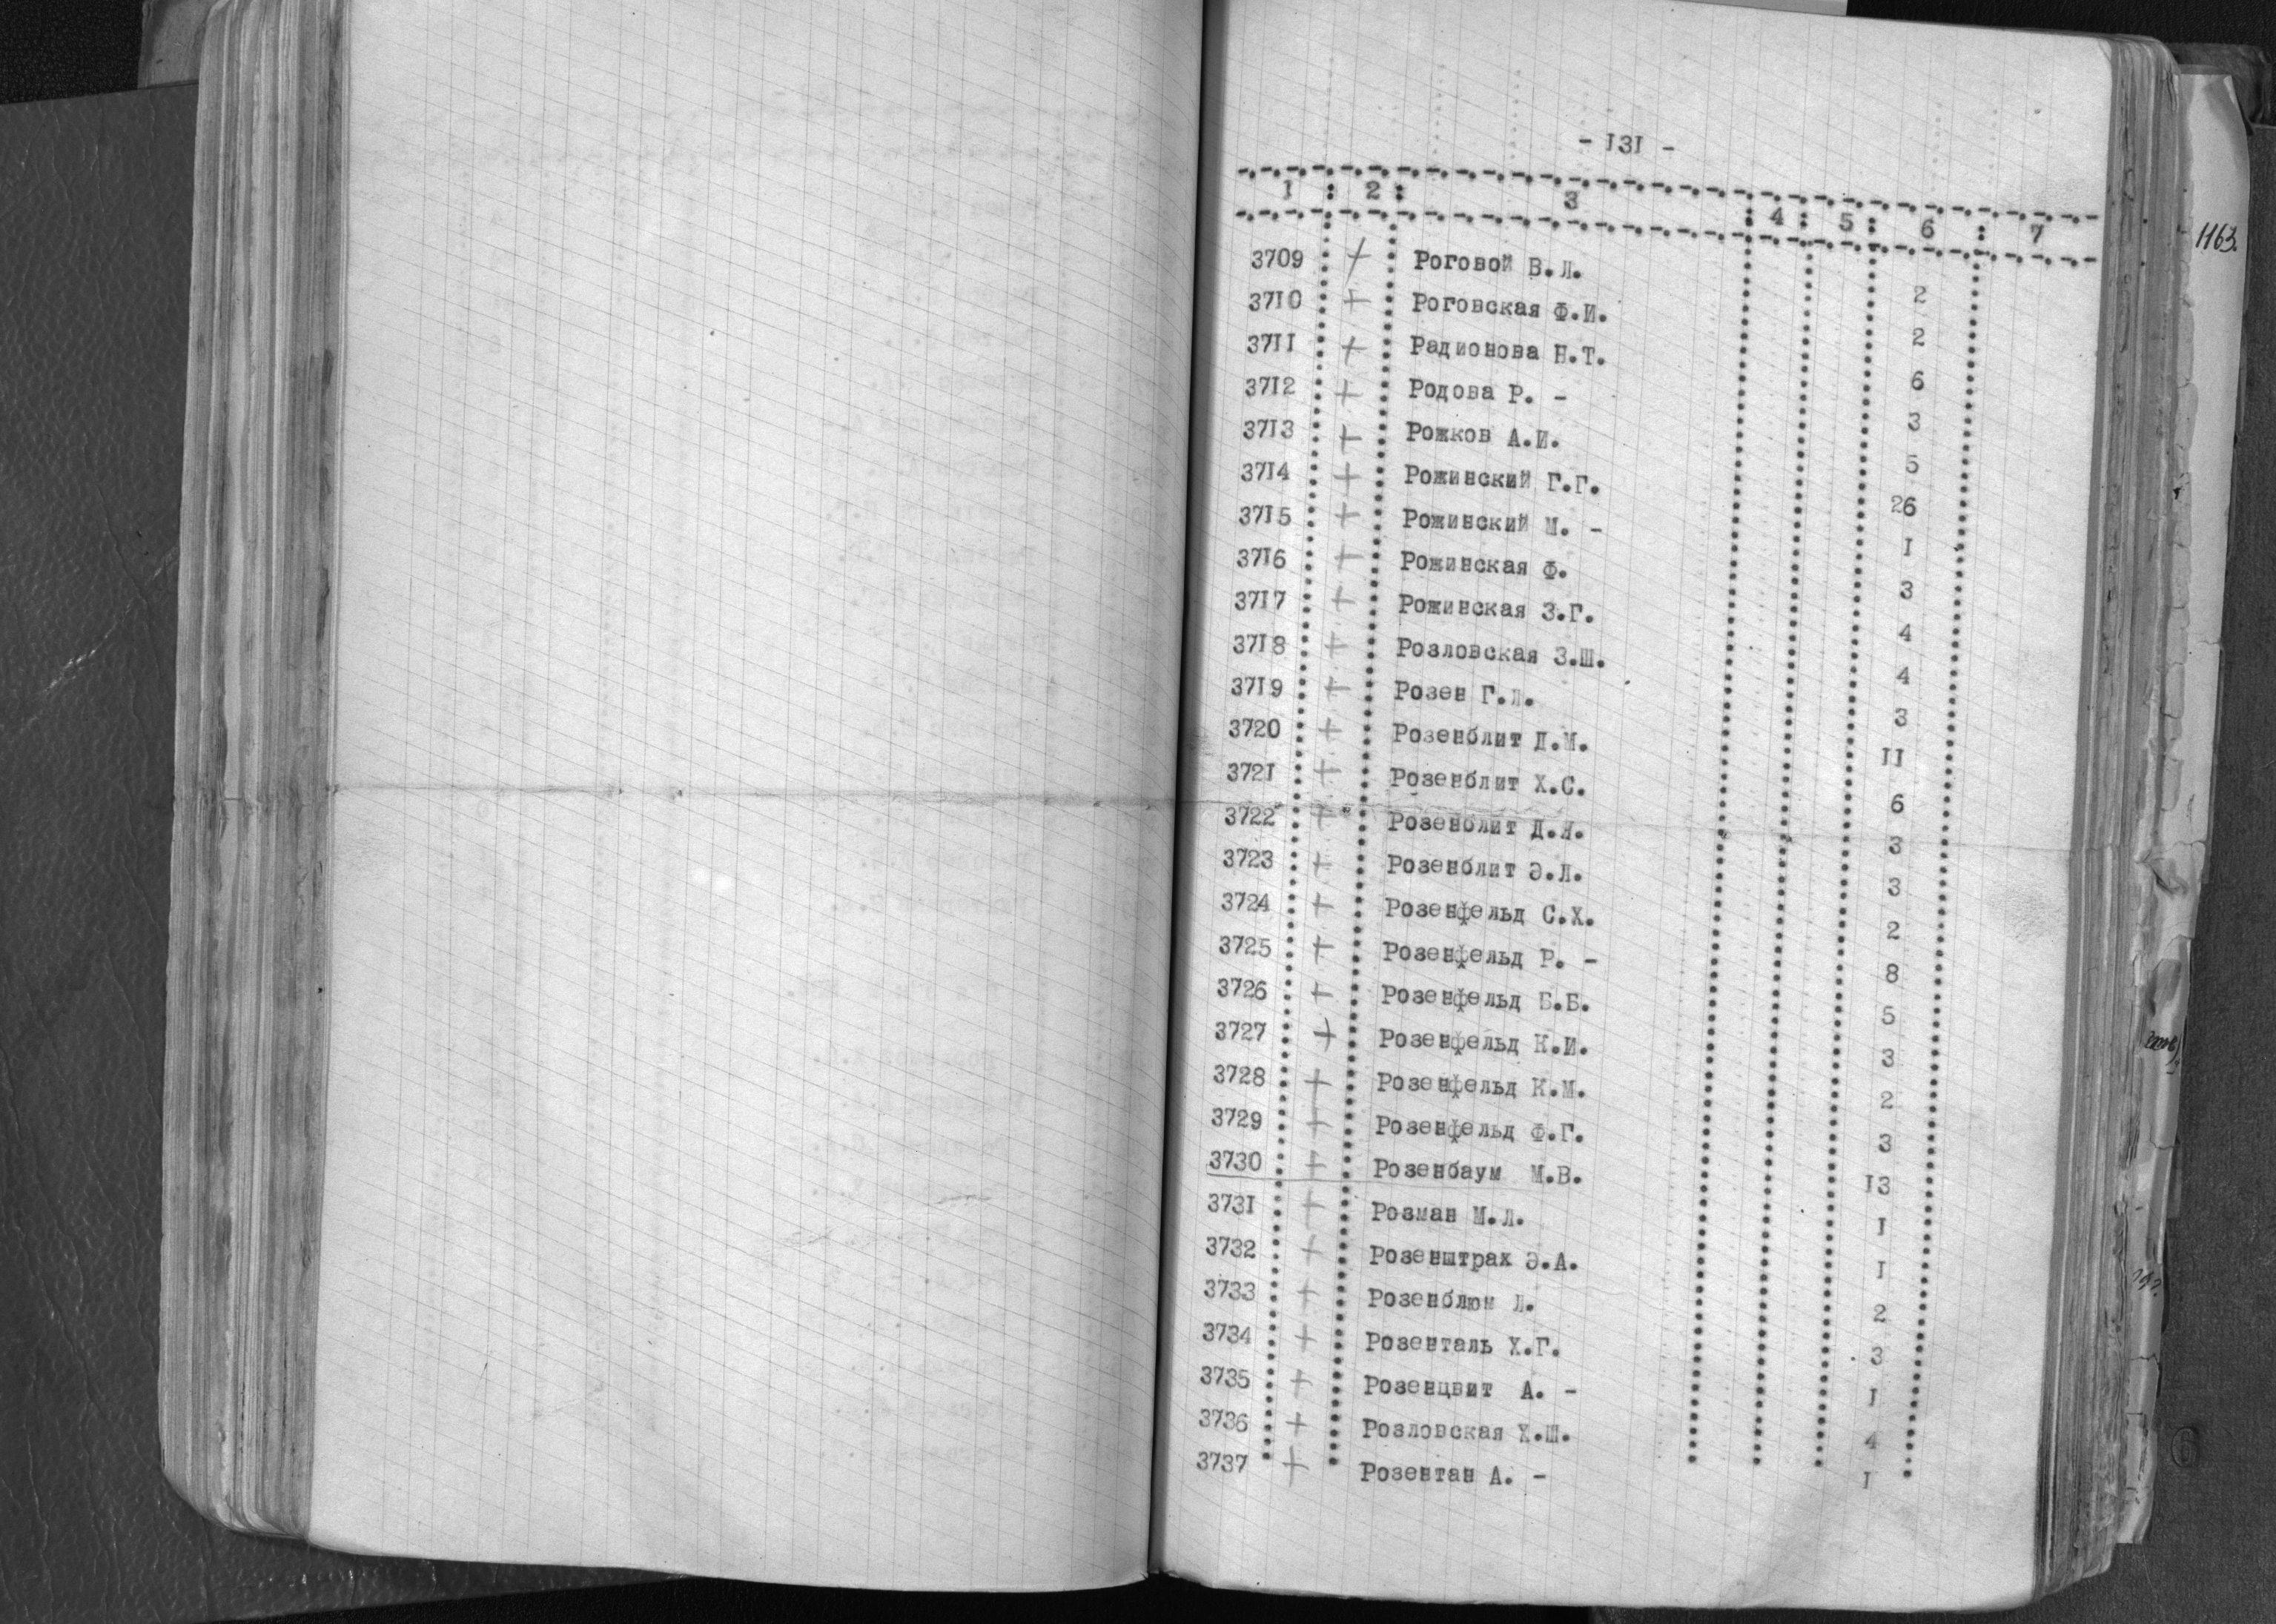 - 131 -
1 : 2 : 3 : 4 : 5 : 6 : 7
1163.
3709 + Роговой В.Л. 2
3710 + Роговская Ф.И. 2
3711 + Радионова Н.Т. 6
3712 + Родова Р. - 3
3713 + Рожков А.И. 5
3714 + Рожинский Г.Г. 26
3715 + Рожинский М. - 1
3716 + Рожинская Ф. 3
3717 + Рожинская З.Г. 4
3718 + Розловская З.Ш. 4
3719 + Розен Г.Л. 3
3720 + Розенблит Д.М. 11
3721 + Розенблит Х.С. 6
3722 + Розенблит Д.Я. 3
3723 + Розенблит Э.Л. 3
3724 + Розенфельд С.Х. 2
3725 + Розенфельд Р. - 8
3726 + Розенфельд Б.Б. 5
3727 + Розенфельд К.И. 3
3728 + Розенфельд К.М. 2
3729 + Розенфельд Ф.Г. 3
3730 + Розенбаум М.В. 13
3731 + Розман М.Л. 1
3732 + Розенштрах Э.А. 1
3733 + Розенблюм Л. 2
3734 + Розенталь Х.Г. 3
3735 + Розенцвит А. - 1
3736 + Розловская Х.Ш. 4
3737 + Розентан А. - 1